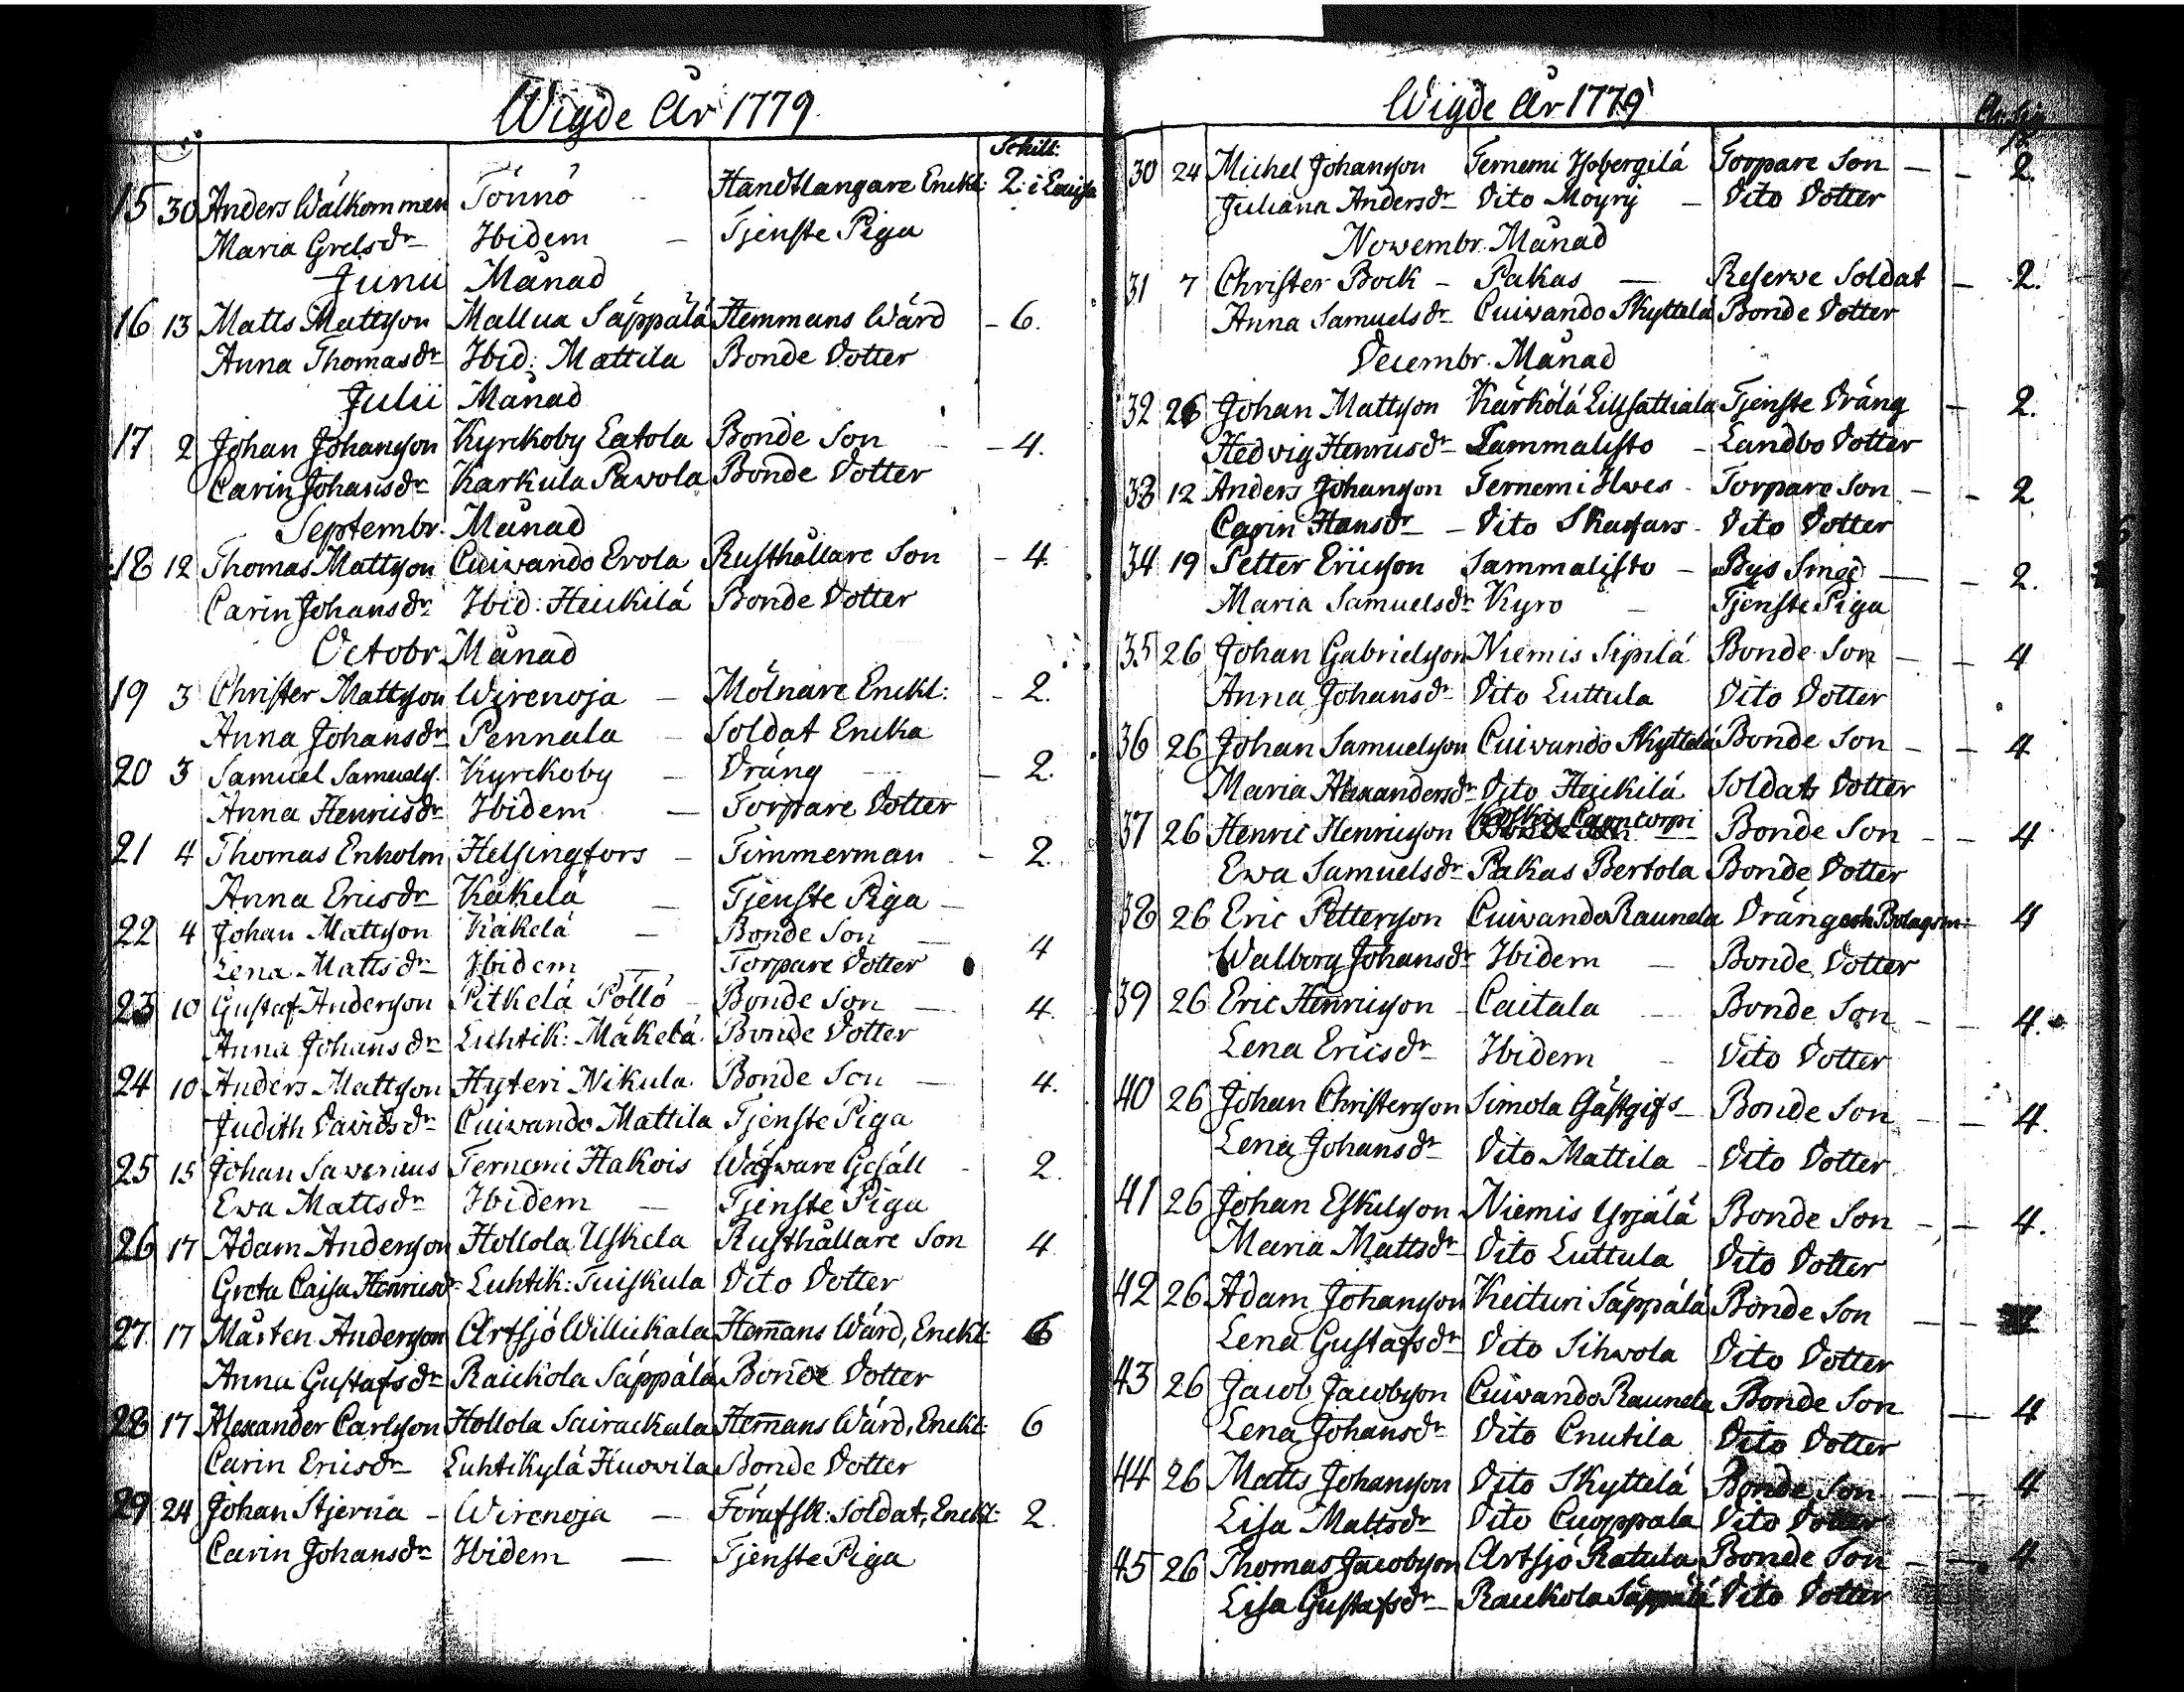 Wigde År 1779
Schill:
15 30 Anders Wälkommen Tönnö Handtlangare Enckl: 2: i Lovisa
Maria Grelsdr Ibidem – Tjenste Piga
Junii Månad
16 13 Matts Mattsson Mallua Säppälä Hemmans Wärd – 6.
Anna Thomasdr Ibid: Mattila Bonde Dotter
Julii Månad
17 2 Johan Johansson Kyrckoby Latola Bonde Son – 4.
Carin Johansdr Karkula Pawola Bonde Dotter
Septembr. Månad
18 12 Thomas Mattsson Cuivando Erola Rusthållare Son – 4.
Carin Johansdr Ibid: Heickilä Bonde Dotter
Octobr Månad
19 3 Christer Mattsson Wirenoja – Mölnare Enckl: – 2.
Anna Johansdr Pennala – Soldat Encka
20 3 Samuel Samuels. Kyrckoby – Dräng – 2.
Anna Henricsdr Ibidem – Torpare Dotter
21 4 Thomas Enholm Helsingfors – Timmerman – 2.
Anna Ericsdr Käkelä – Tjenste Piga –
22 4 Johan Mattsson Käkelä – Bonde Son – 4
Lena Mattsdr Ibidem – Torpare Dotter
23 10 Gustaf Andersson Pitkelä Pöllö – Bonde Son – 4.
Anna Johansdr Luhtik: Mäkelä Bonde Dotter
24 10 Anders Mattsson Hyteri Nikula Bonde Son – 4.
Judith Davidsdr Cuivando Mattila Tjenste Piga
25 15 Johan Savenius Ternemi Hakois Wäfware Gesäll – 2.
Ewa Mattsdr Ibidem – Tjenste Piga
26 17 Adam Andersson Hollola Uskela Rusthållare Son 4
Greta Caisa Henricsdr Luhtik: Tuiskula Dito Dotter
27. 17 Mårten Andersson Artsjö Willickala Hem̄ans Wärd, Enckl: 6
Anna Gustafsdr Raickola Säppälä Bonde Dotter
28 17 Alexander Carlsson Hollola Sairackala Hem̄ans Wärd, Enckl: 6
Carin Ericsdr Luhtikylä Huovila Bonde Dotter
29 24 Johan Stjerna – Wirenoja – Förafsk: Soldat, Enckl: 2.
Carin Johansdr Ibidem – Tjenste Piga
Wigde År 1779
30 24 Michel Johansson Ternemi Isobergilä Torpare Son – – 2.
Juliana Andersdr Dito Möyry – Dito Dotter
Novembr. Månad
31 7 Christer Bock – Pakas – Reserve Soldat – 2.
Anna Samuelsdr Cuivando Skyttelä Bonde Dotter
Decembr. Månad
32 26 Johan Mattsson Kärkölä Lillsattiala Tjenste Dräng – 2.
Hedvig Henricsdr Sammalisto – Landbo Dotter
33 12 Anders Johansson Ternemi Ilves – Torpare Son – – 2
Carin Hansdr – Dito Skaftars – Dito Dotter
34 19 Petter Ericsson Sammalisto – Bys Smed – – 2.
Maria Samuelsdr Kyro – Tjenste Piga
35 26 Johan Gabrielsson Niemis Sipilä Bonde Son – – 4
Anna Johansdr Dito Luttula Dito Dotter
36 26 Johan Samuelsson Cuivando Skyttelä Bonde Son – – 4
Maria Alexandersdr Dito Heickilä Soldats Dotter
37 26 Henric Henricsson Koskis Bonde Son – – 4
Ewa Samuelsdr Pakas Bertola Bonde Dotter
38 26 Eric Pettersson Cuivando Raunela Dräng och Bolagsm: 4
Walborg Johansdr Ibidem – Bonde Dotter
39 26 Eric Henricsson – Caitala – Bonde Son – – 4.
Lena Ericsdr Ibidem – Dito Dotter
40 26 Johan Christersson Simola Gästgifs – Bonde Son – – 4.
Lena Johansdr Dito Mattila – Dito Dotter
41 26 Johan Eskelsson Niemis Yrjälä Bonde Son – – 4.
Maria Mattsdr Dito Luttula Dito Dotter
42 26 Adam Johansson Keituri Säppälä Bonde Son – –
Lena Gustafsdr Dito Sihvola Dito Dotter
43 26 Jacob Jacobsson Cuivando Raunela Bonde Son – 4
Lena Johansdr Dito Cnutila Dito Dotter
44 26 Matts Johansson Dito Skyttelä Bonde Son – – 4
Lisa Mattsdr Dito Cuoppala Dito Dotter
45 26 Thomas Jacobsson Artsjö Ratula Bonde Son – – 4
Lisa Gustafsdr – Raickola Säppälä Dito Dotter